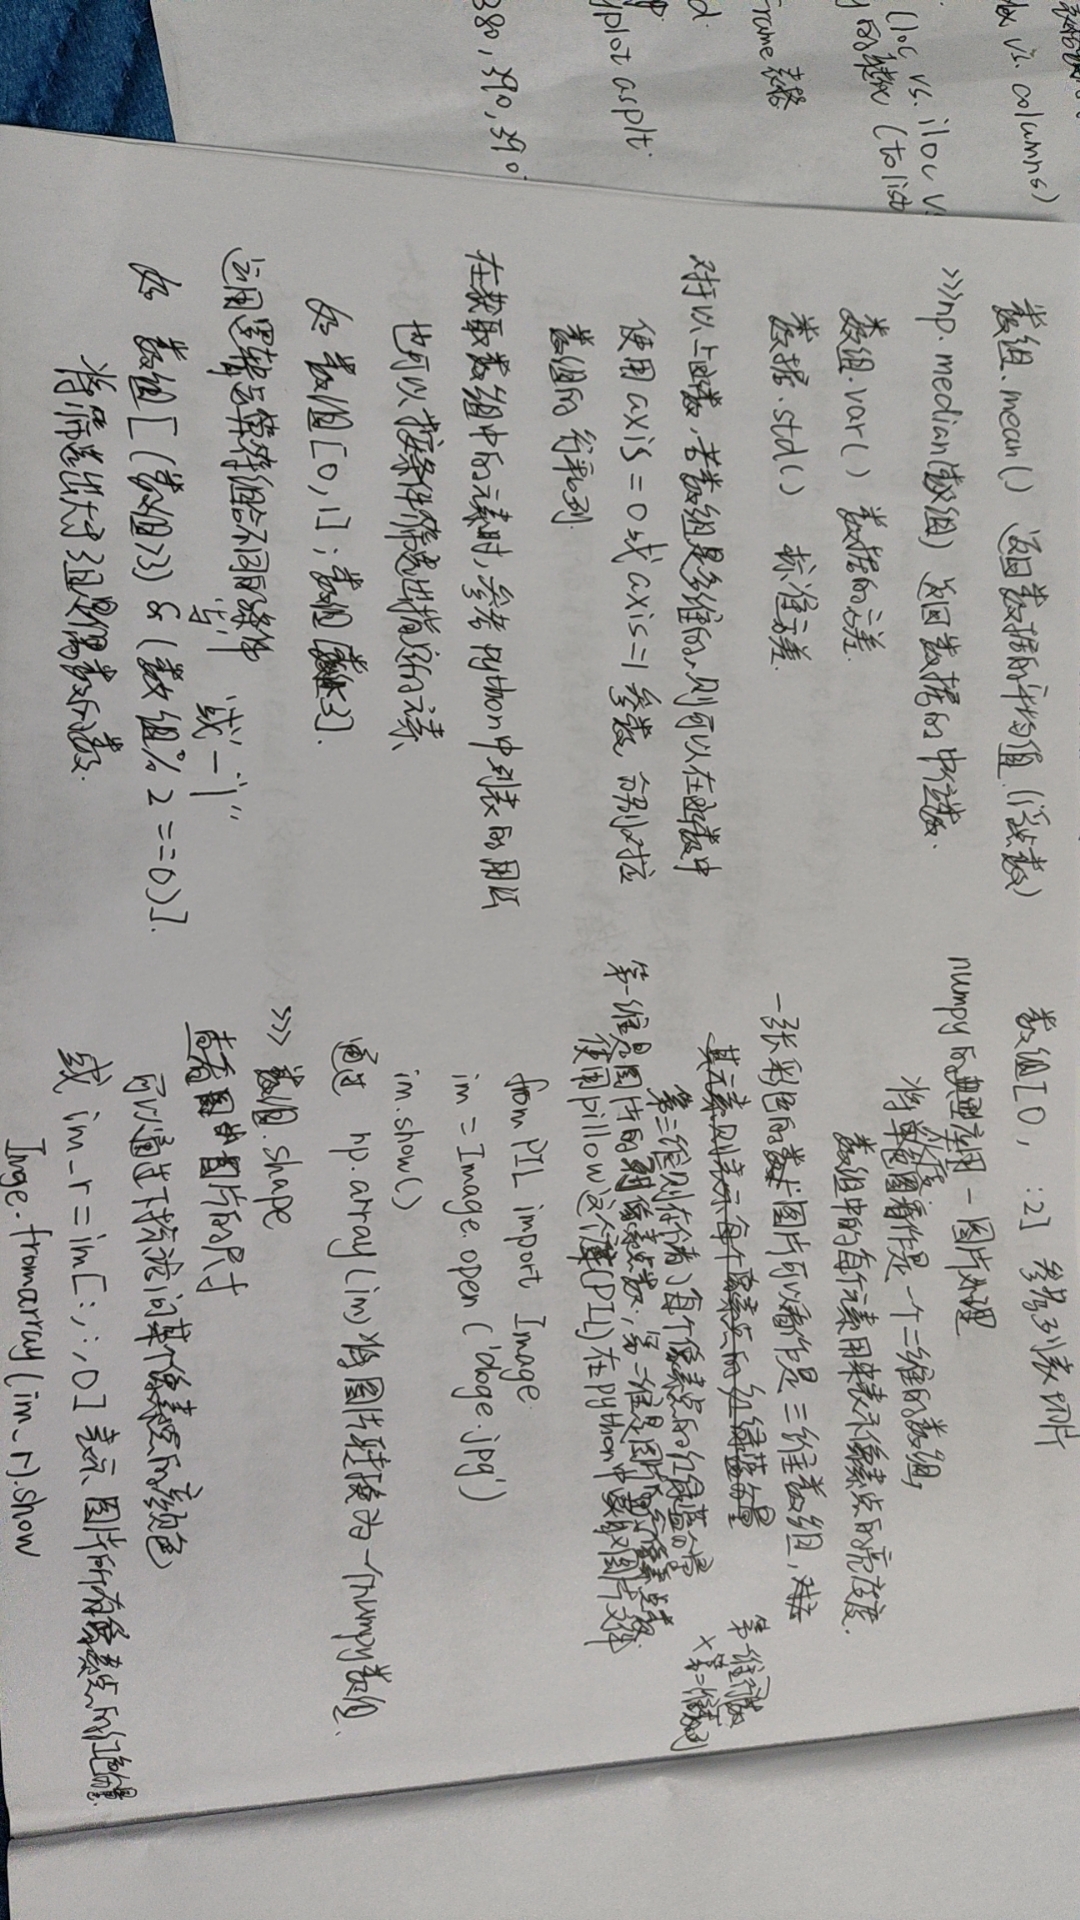 表格
dex vs. columns)
(loc vs. iloc v
的 (to list
frame 表格
d
yplot as plt.
380, 390, 390
数组.mean() 返回数据的平均值 (浮点数)
>>>np.median(数组) 返回数据的中位数.
数组.var() 数据的方差.
数据.std() 标准方差.
对于以上函数,若数组是多维的,则可以在函数中
使用axis=0或axis=1参数,分别对应
数组的行和列.
在获取数组中的元素时,参考python中列表的用法
也可以按条件筛选出指定的元素
如 数组[0,1]; 数组[数组>3].
运用逻辑与算符组合不同的条件
与"&" 或"|"
如 数组[(数组>3) & (数组%2==0)].
将筛选出大于3且是偶数的数.
数组[0, :2] 参考列表切片
numpy的典型应用-图片处理
将灰度图看作是一个二维的数组,
数组中的每个元素用来表示像素点的亮度.
一张彩色的图片可以看作是三维数组,对应
第一维行数
×第二维列
其元素则表示每个像素点的红绿蓝分量
第三维则存储了每个像素点的红绿蓝分量
第一维是图片的像素点数,第二维是图片的像素点数
使用pillow这个库(PIL)在python中读取图片文件
from PIL import Image
im = Image.open('doge.jpg')
im.show()
通过 np.array(im)将图片转换为一个numpy数组.
>>> 数组.shape
查看图片的尺寸
可以通过下标访问某个像素点的颜色
或 im_r = im[:,:,0] 表示图片所有像素点的红色分量.
Imge.fromarray(im_r).show